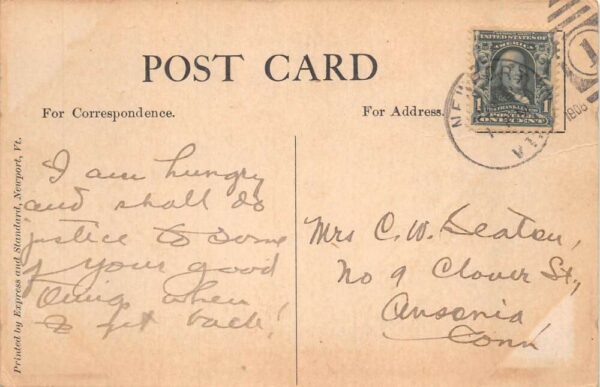 POST CARD
For Correspondence.
For Address.
UNITED STATES OF
AMERICA
1 1
FRANKLIN
POSTAGE
ONE CENT
1
1908
Printed by Express and Standard, Newport, Vt.
I am hungry
and shall do
justice to some
of your good
when
I get back!
Mrs C. W. Deaton,
No 9 Clover St,
Ansonia
Conn